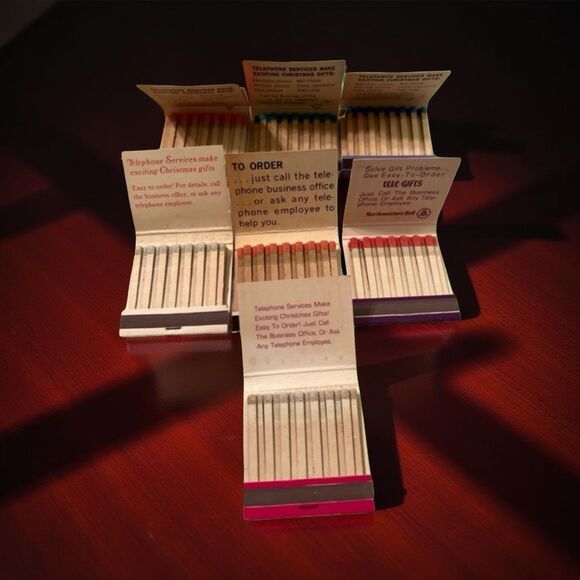 TELEPHONE SERVICES MAKE
TELEPHONE SERVICES MAKE
EXCITING CHRISTMAS GIFTS:
TELEPHONE SERVICES MAKE
EXCITING CHRISTMAS GIFTS:
Telephone Services make
exciting Christmas gifts
Easy to order! For details, call
the business office, or ask any
telephone employee.
TO ORDER
. . . just call the tele-
phone business office
. . . or ask any tele-
phone employee to
help you.
Solve Gift Problems...
Give Easy-To-Order
TELE-GIFTS
Just Call The Business
Office, Or Ask Any Tele-
phone Employee.
Northwestern Bell
Telephone Services Make
Exciting Christmas Gifts!
Easy To Order! Just Call
The Business Office, Or Ask
Any Telephone Employee.